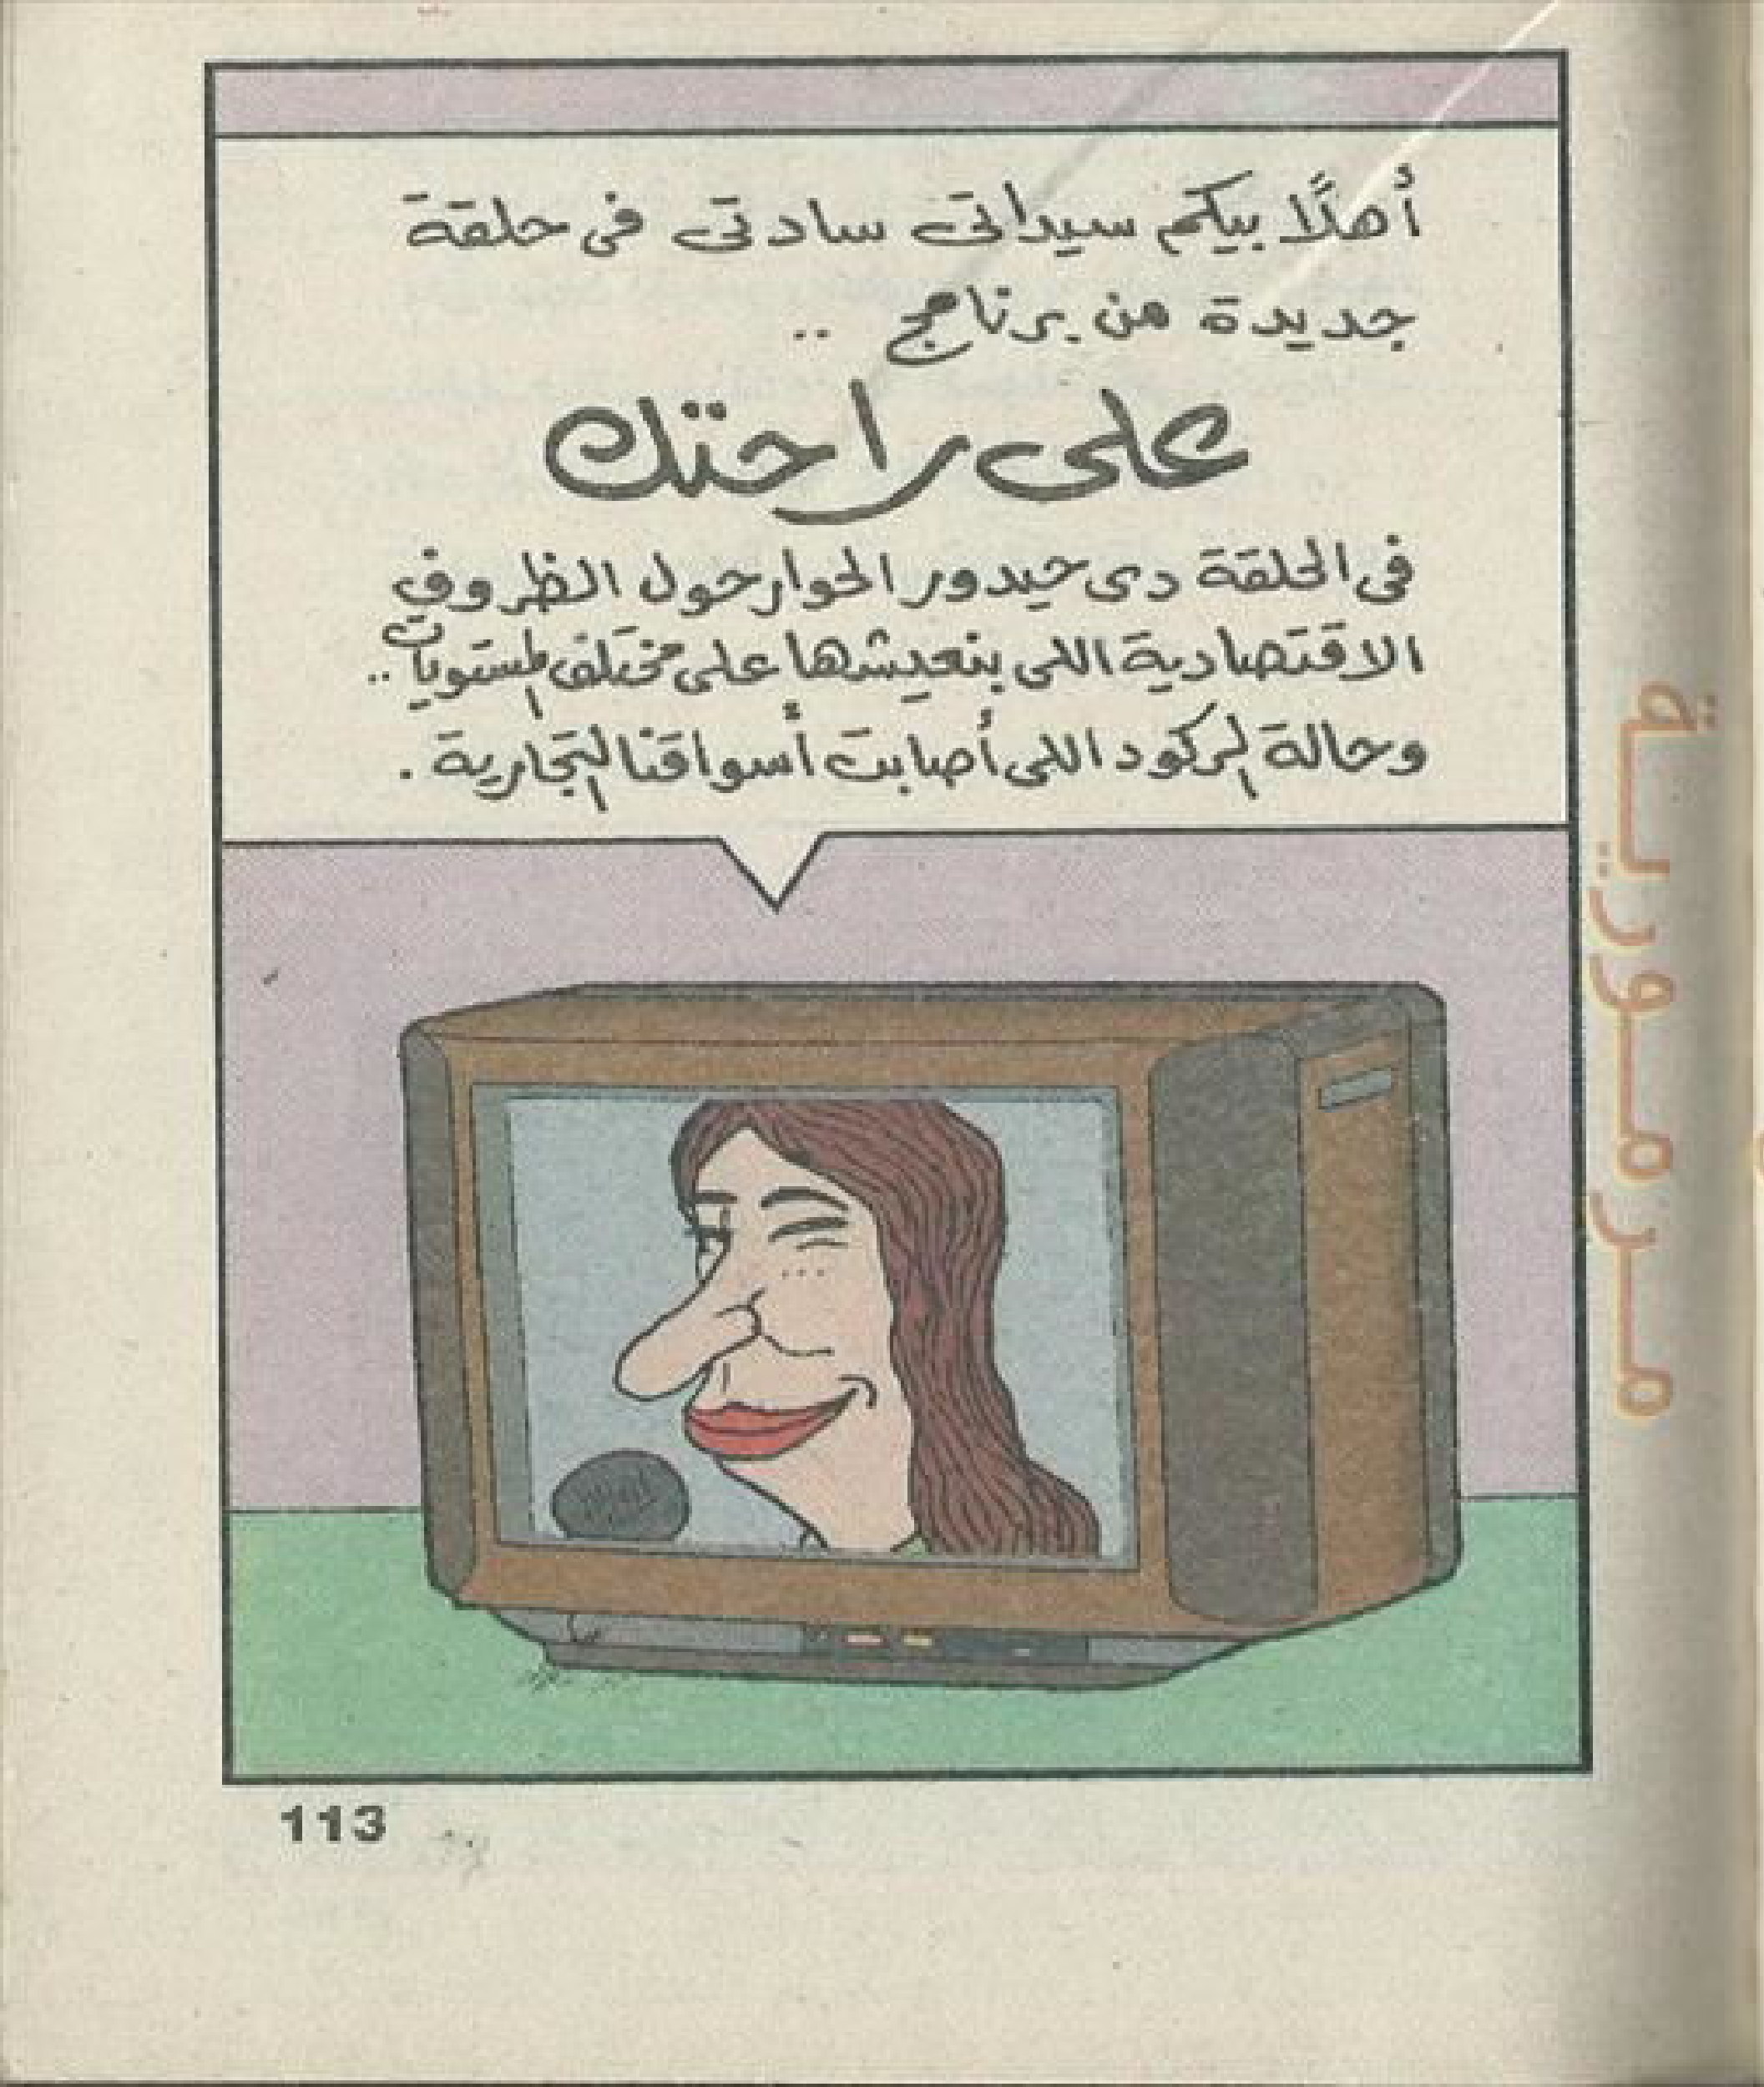 أهلًا بيكم سيداتى سادتى فى حلقة
جديدة من برنامج ..
على راحتك
فى الحلقة دى حيدور الحوار حول الظروف
الاقتصادية اللى بنعيشها على مختلف المستويات ..
وحالة الركود اللى أصابت أسواقنا التجارية .
113
مرمورية